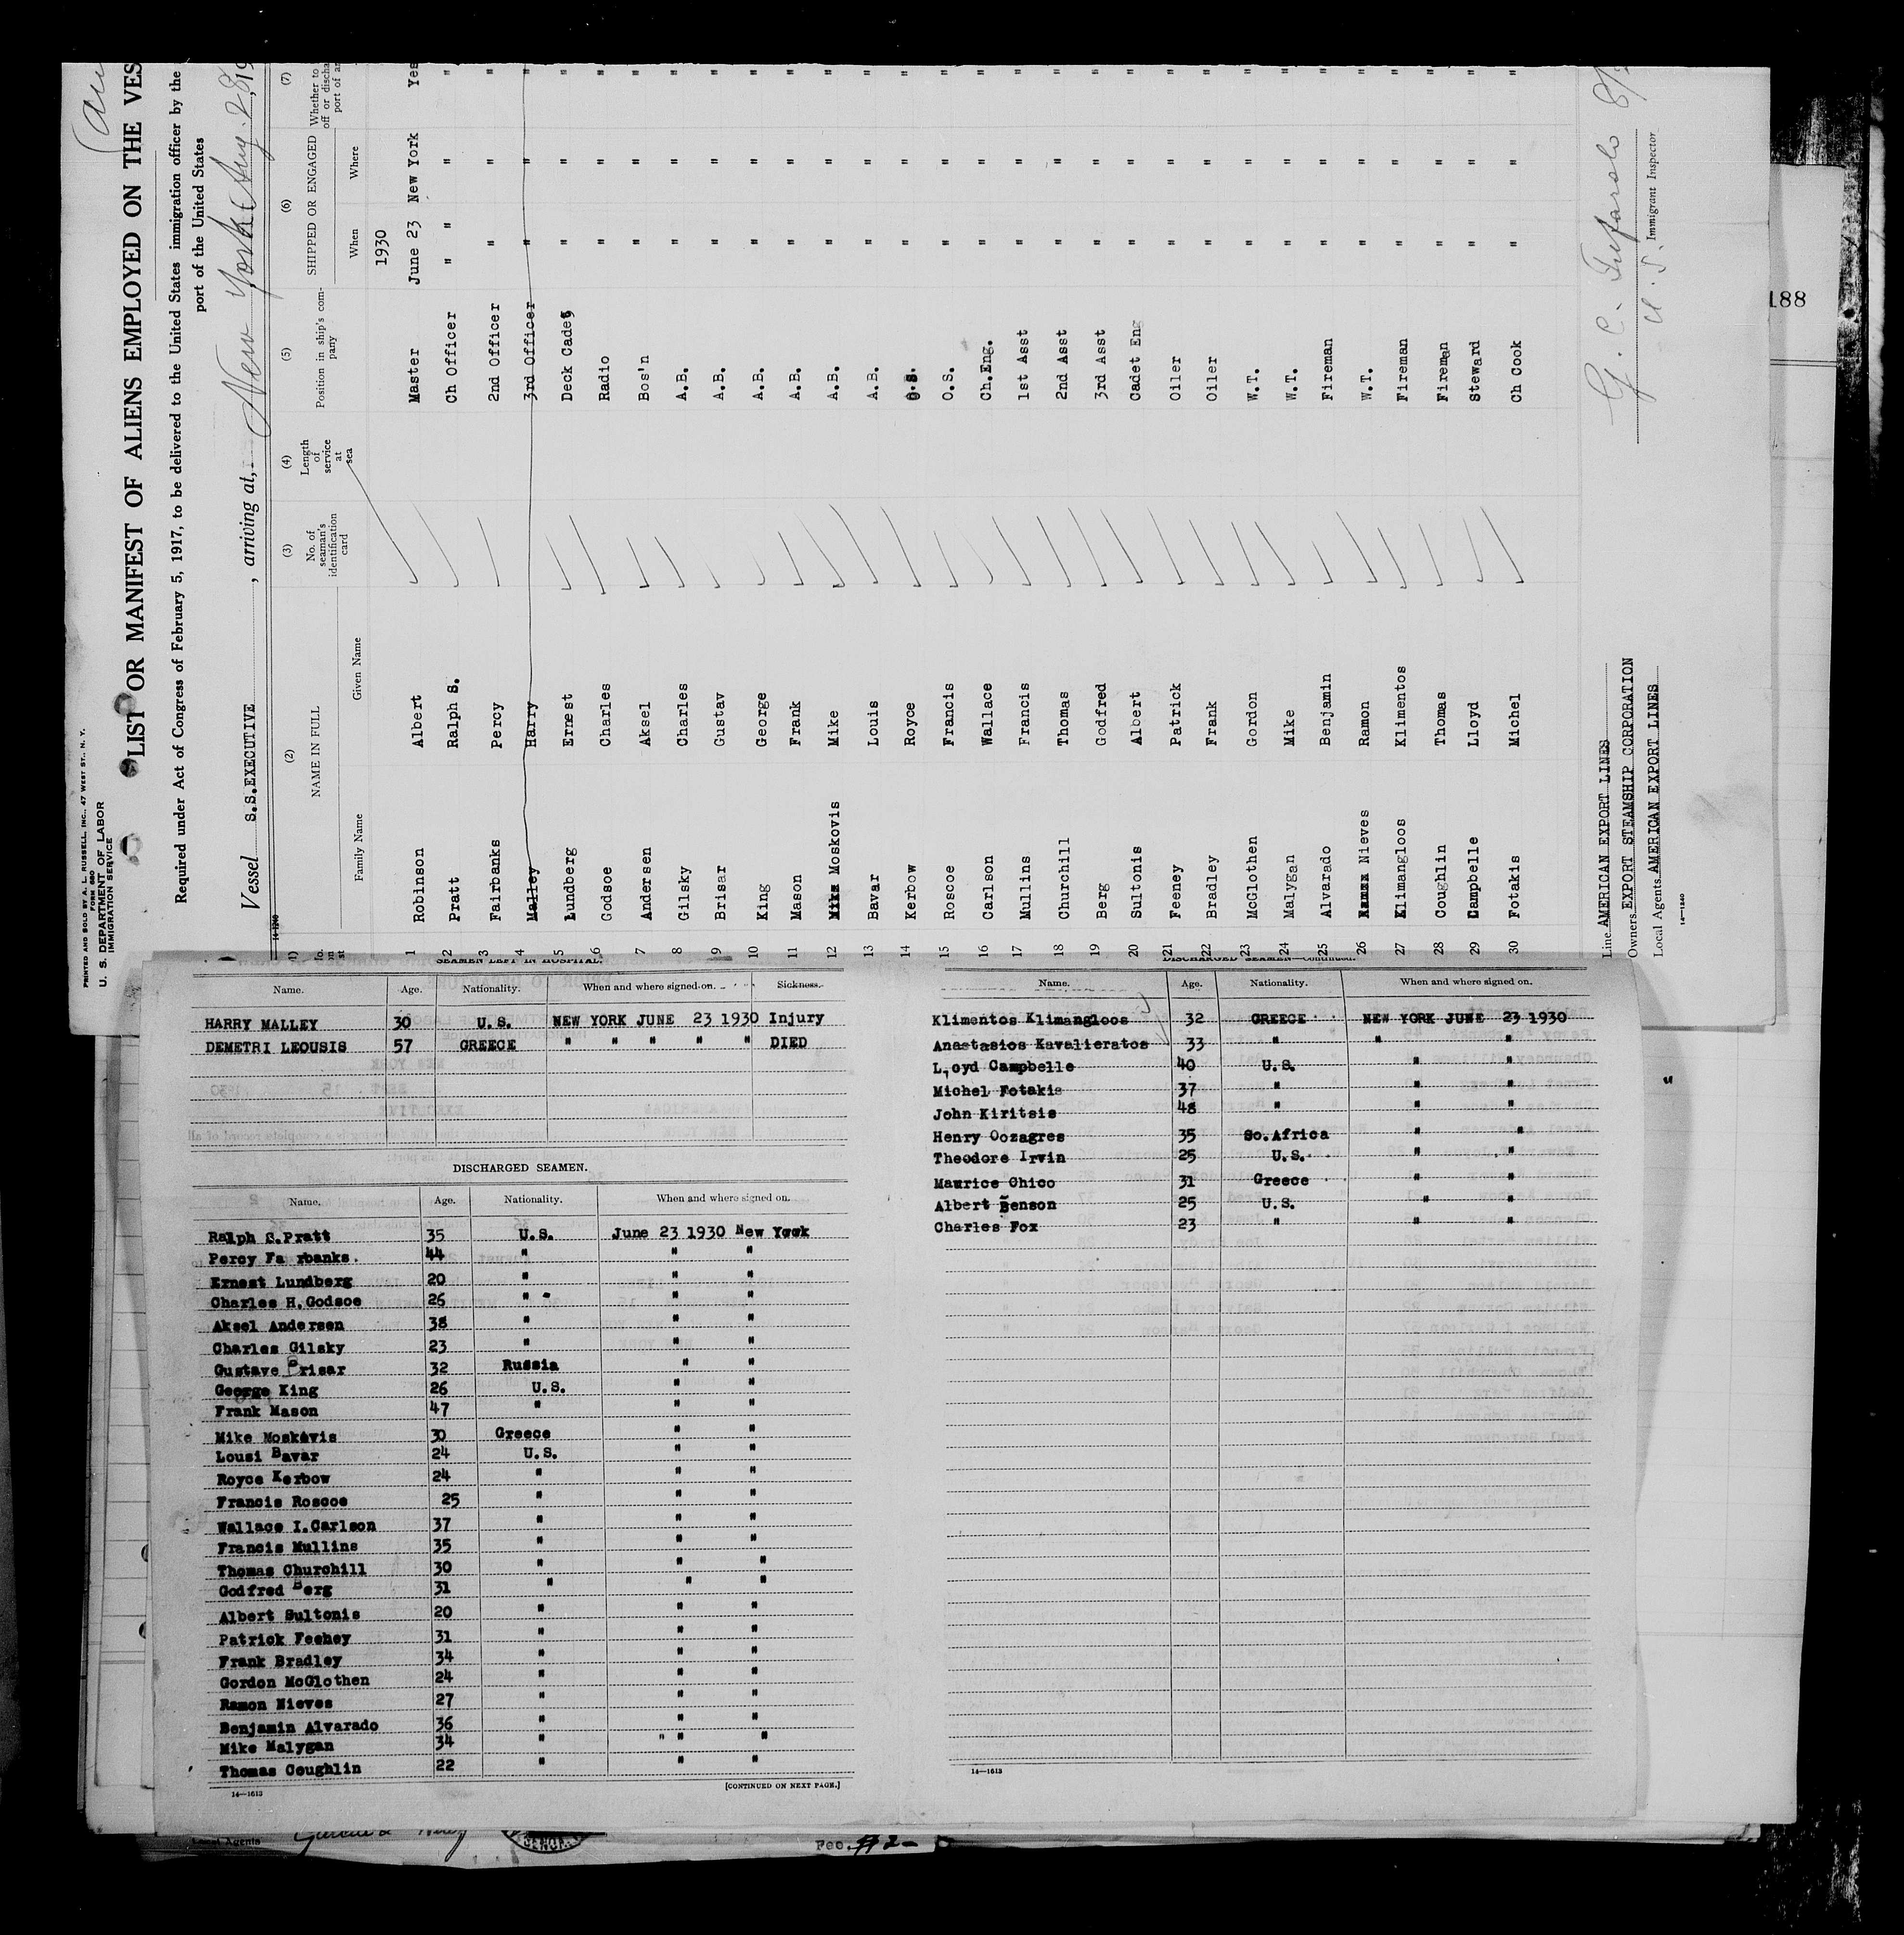 PRINTED AND SOLD BY A. L. RUSSELL, INC., 47 WEST ST., N. Y.
FORM 680
U. S. DEPARTMENT OF LABOR
IMMIGRATION SERVICE
LIST OR MANIFEST OF ALIENS EMPLOYED ON THE VES
Required under Act of Congress of February 5, 1917, to be delivered to the United States immigration officer by the
port of the United States
Vessel S.S.EXECUTIVE, arriving at, New York Aug. 28, 19
14-1240
(2) (3) (4) (5) (6) (7)
NAME IN FULL No. of seaman's identification card Length of service at sea Position in ship's company SHIPPED OR ENGAGED Whether to
off or discha
port of ar
Family Name Given Name When Where
1930
1 Robinson Albert Master June 23 New York Yes
2 Pratt Ralph S. Ch Officer " " " "
3 Fairbanks Percy 2nd Officer " " "
4 Malley Harry 3rd Officer " " "
5 Lundberg Ernest Deck Cadet " " "
6 Godsoe Charles Radio " " "
7 Andersen Aksel Bos'n " " "
8 Gilsky Charles A.B. " " "
9 Brisar Gustav A.B. " " "
10 King George A.B. " " "
11 Mason Frank A.B. " " "
12 Mike Moskovis Mike A.B. " " "
13 Bavar Louis A.B. " " "
14 Kerbow Royce O.S. " " "
15 Roscoe Francis O.S. " " "
16 Carlson Wallace Ch.Eng. " " "
17 Mullins Francis 1st Asst " " "
18 Churchill Thomas 2nd Asst " " "
19 Berg Godfred 3rd Asst " " "
20 Sultonis Albert Cadet Eng " " "
21 Feeney Patrick Oiler " " "
22 Bradley Frank Oiler " " "
23 McGlothen Gordon W.T. " " "
24 Malygan Mike W.T. " " "
25 Alvarado Benjamin Fireman " " "
26 Nieves Ramon W.T. " " "
27 Klimangloos Klimentos Fireman " " "
28 Coughlin Thomas Fireman " " "
29 Campbelle Lloyd Steward " " "
30 Fotakis Michel Ch Cook " " "
Line AMERICAN EXPORT LINES
Owners EXPORT STEAMSHIP CORPORATION
Local Agents AMERICAN EXPORT LINES
14—1240
U. S. Immigrant Inspector
188
SEAMEN LEFT IN HOSPITAL.
Name. Age. Nationality. When and where signed on. Sickness.
HARRY MALLEY 30 U.S. NEW YORK JUNE 23 1930 Injury
DEMETRI LEOUSIS 57 GREECE " " " " " DIED
DISCHARGED SEAMEN.
Name. Age. Nationality. When and where signed on.
Ralph S.Pratt 35 U.S. June 23 1930 New York
Percy Fa rbanks. 44 " " "
Ernest Lundberg 20 " " "
Charles H.Godsoe 26 " " "
Aksel Andersen 38 " " "
Charles Gilsky 23 " " "
Gustave Brisar 32 Russia " "
George King 26 U.S. " "
Frank Mason 47 " " "
Mike Moskovis 30 Greece " "
Lousi Bavar 24 U.S. " "
Royce Kerbow 24 " " "
Francis Roscoe 25 " " "
Wallace I.Carlson 37 " " "
Francis Mullins 35 " " "
Thomas Churchill 30 " " "
Godfred Berg 31 " " "
Albert Sultonis 20 " " "
Patrick Feehey 31 " " "
Frank Bradley 34 " " "
Gordon McGlothen 24 " " "
Ramon Nieves 27 " " "
Benjamin Alvarado 36 " " "
Mike Malygan 34 " " " "
Thomas Coughlin 22 " " "
14—1613
[CONTINUED ON NEXT PAGE.]
DISCHARGED SEAMEN—Continued.
Name. Age. Nationality. When and where signed on.
Klimentos Klimangloos 32 GREECE NEW YORK JUNE 23 1930
Anastasios Kavalieratos 33 " " "
L,oyd Campbelle 40 U.S. " "
Michel Fotakis 37 " " "
John Kiritsis 48 " " "
Henry Oozagres 35 So.Africa " "
Theodore Irvin 25 U.S. " "
Maurice Chico 31 Greece " "
Albert Benson 25 U.S. " "
Charles Fox 23 " " "
14—1613
Local Agents
Fee. $2-